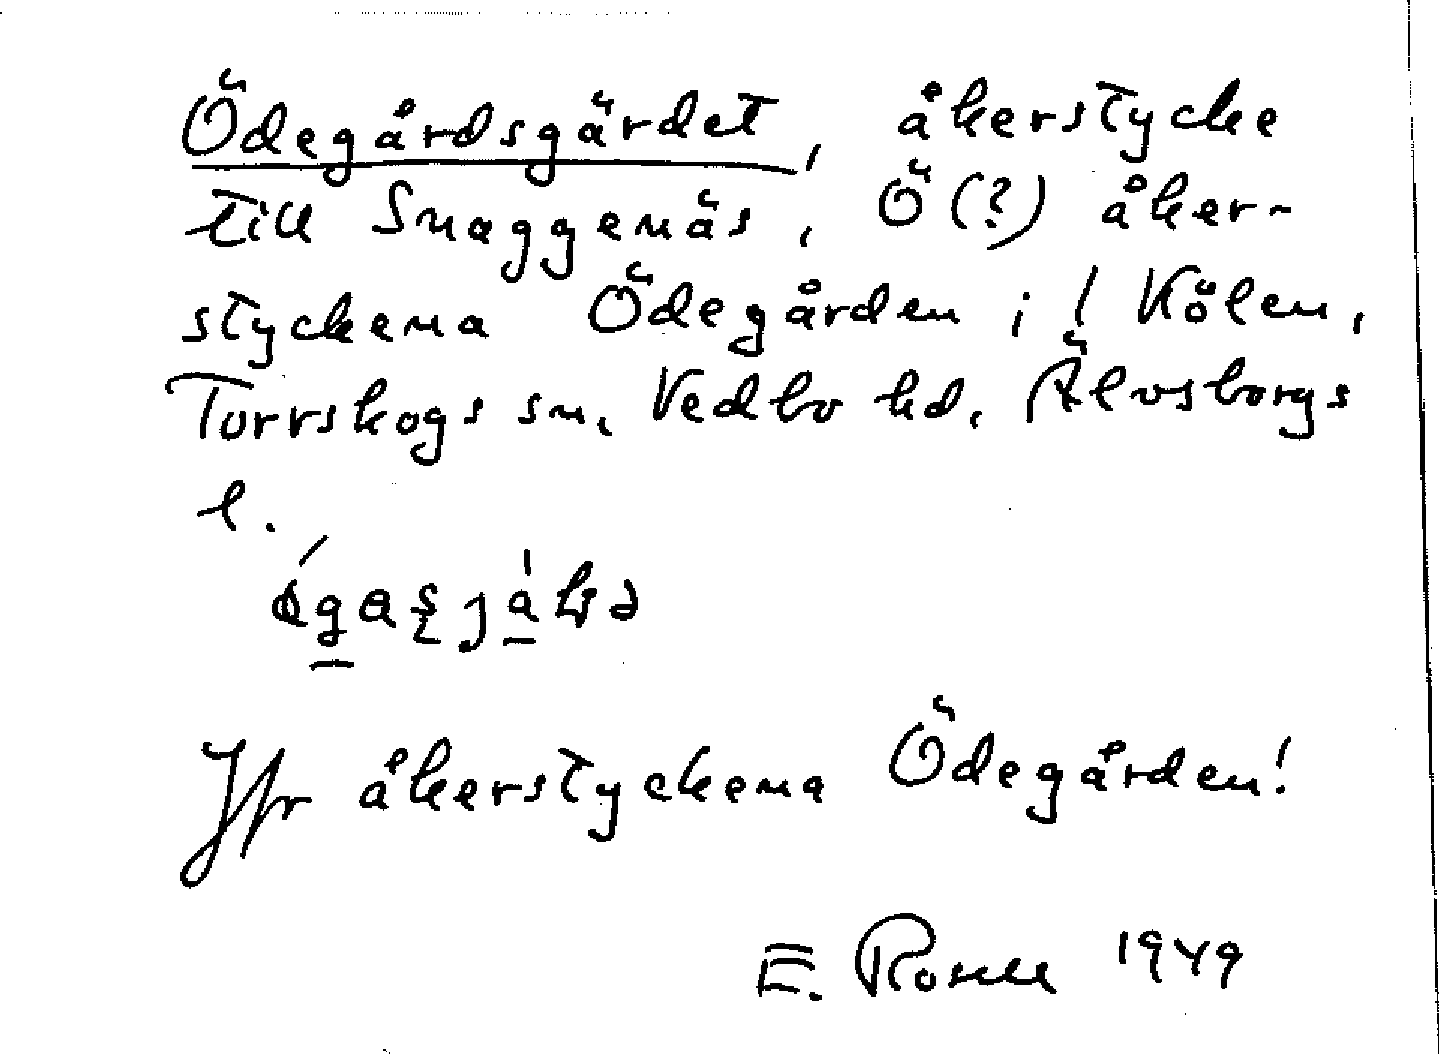 Ödegårdsgärdet, åkerstycke
till Snaggenäs, Ö(?) åker-
styckena Ödegården i / Kölen,
Torrskogs sn, Vedbo hd, Älvsborgs
l.
Jfr åkerstyckena Ödegården!
E. Rosell 1949